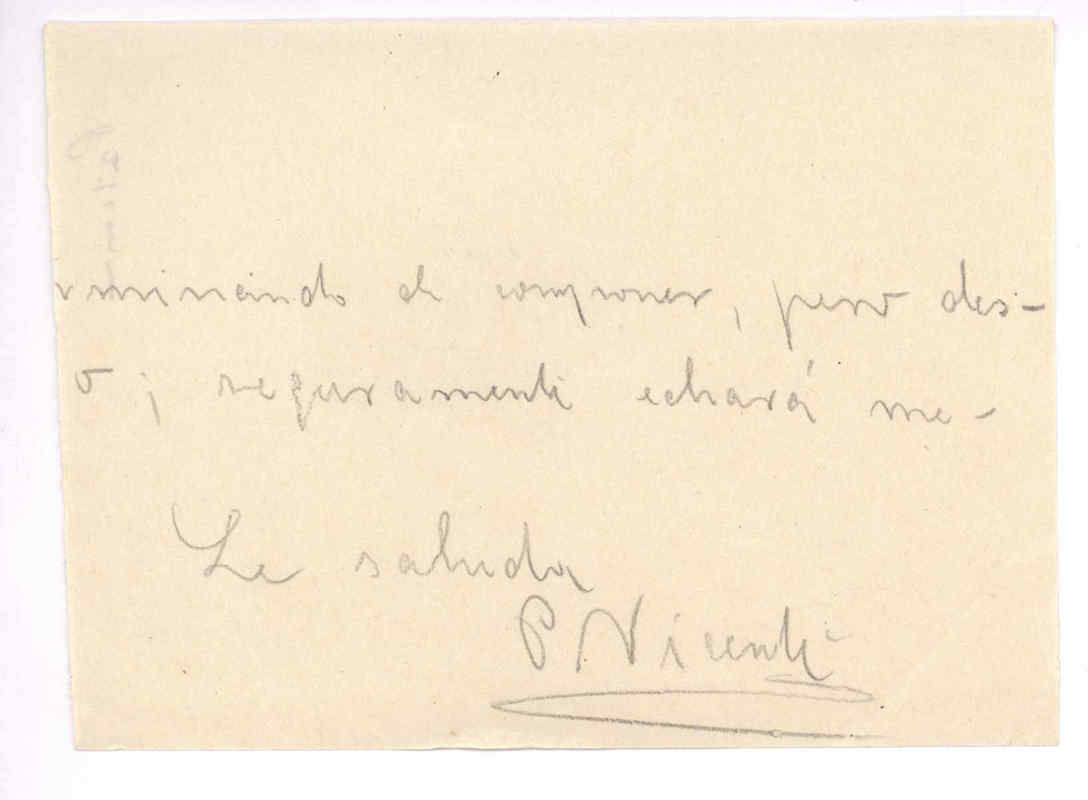 rminando de componer, pero des-
o; seguramente echará me-
Le saluda
P Vicente